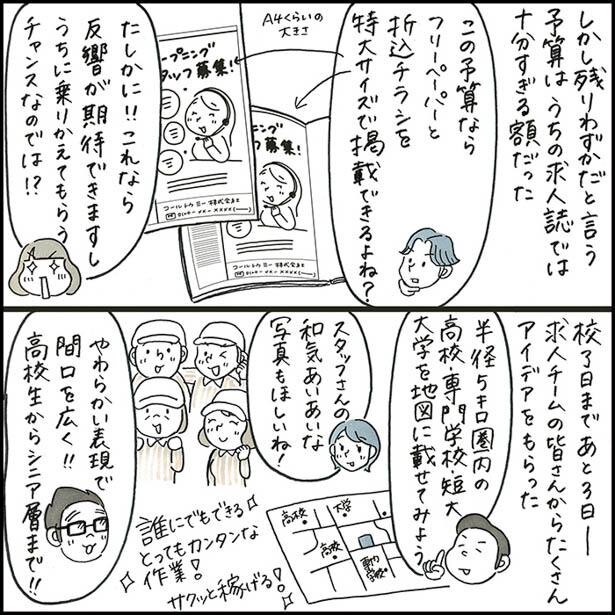 しかし残りわずかだと言う
予算は うちの求人誌では
十分すぎる額だった
この予算なら
フリーペーパーと
折込チラシを
特大サイズで掲載できるよね?
A4くらいの
大きさ
ープニング
タッフ 募集!
ニング
募集!
コールトゥミー 株式会社
コールトゥミー 株式会社
たしかに!! これなら
反響が期待できますし
うちに乗りかえてもらう
チャンスなのでは!?
校了日まであと3日ー
求人チームの皆さんからたくさん
アイデアをもらった
半径5キロ圏内の
高校・専門学校・短大
大学を地図に載せてみよう
高校
大学
高校
専門
学校
スタッフさんの
和気あいあいな
写真もほしいね!
誰にでもできる
とってもカンタンな
作業!
サクッと稼げる!
やわらかい表現で
間口を広く!!
高校生からシニア層まで!!